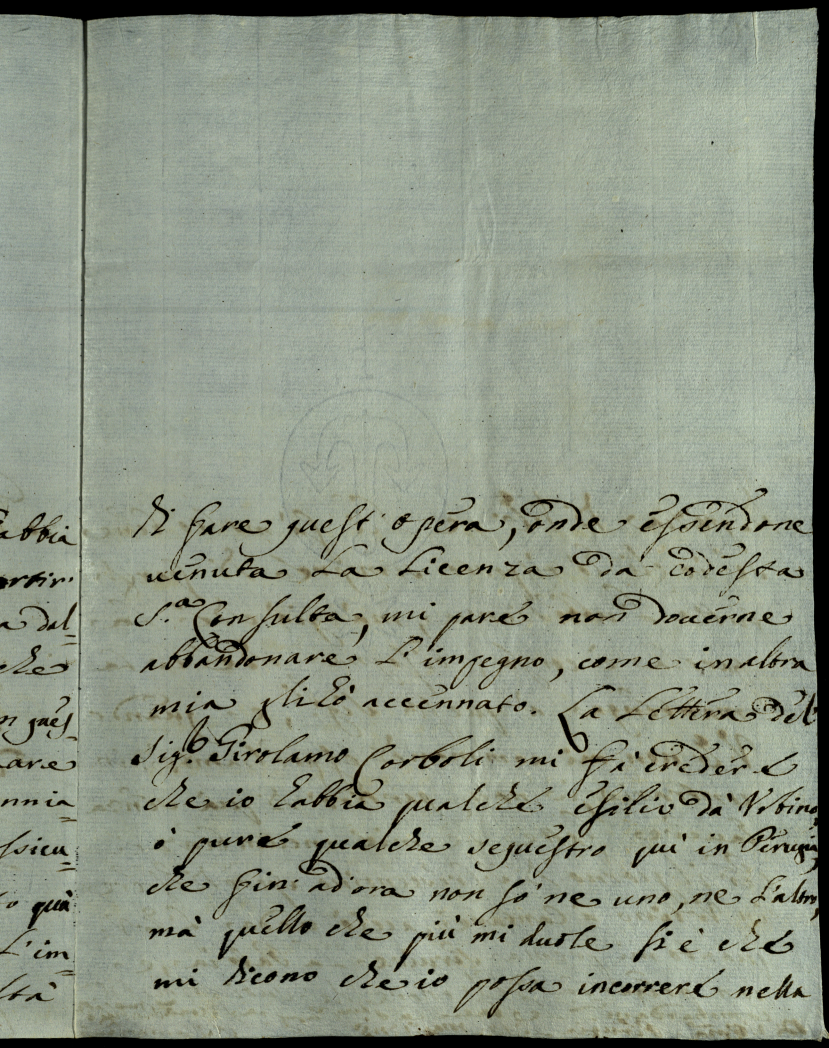 abbia
artir
a dal=
che
n ques=
are
nnia
ssicu=
o quà
L'im=
ltà
di fare quest' opera, onde essendone
uenuta La Licenza da codesta
S.ª Consulta, mi pare non douerne
abbandonare L'impegno, come in altra
mia gli hò accennato. La Lettera del
Sig.r Girolamo Corboli mi fà credere
che io habbia qualche esilio dà Vrbino,
ò pure qualche sequestro quì in Perugia,
che fin ad'ora non sò ne uno, ne l'altro,
mà quello che più mi duole si è che
mi dicono che io possa incorrere nella